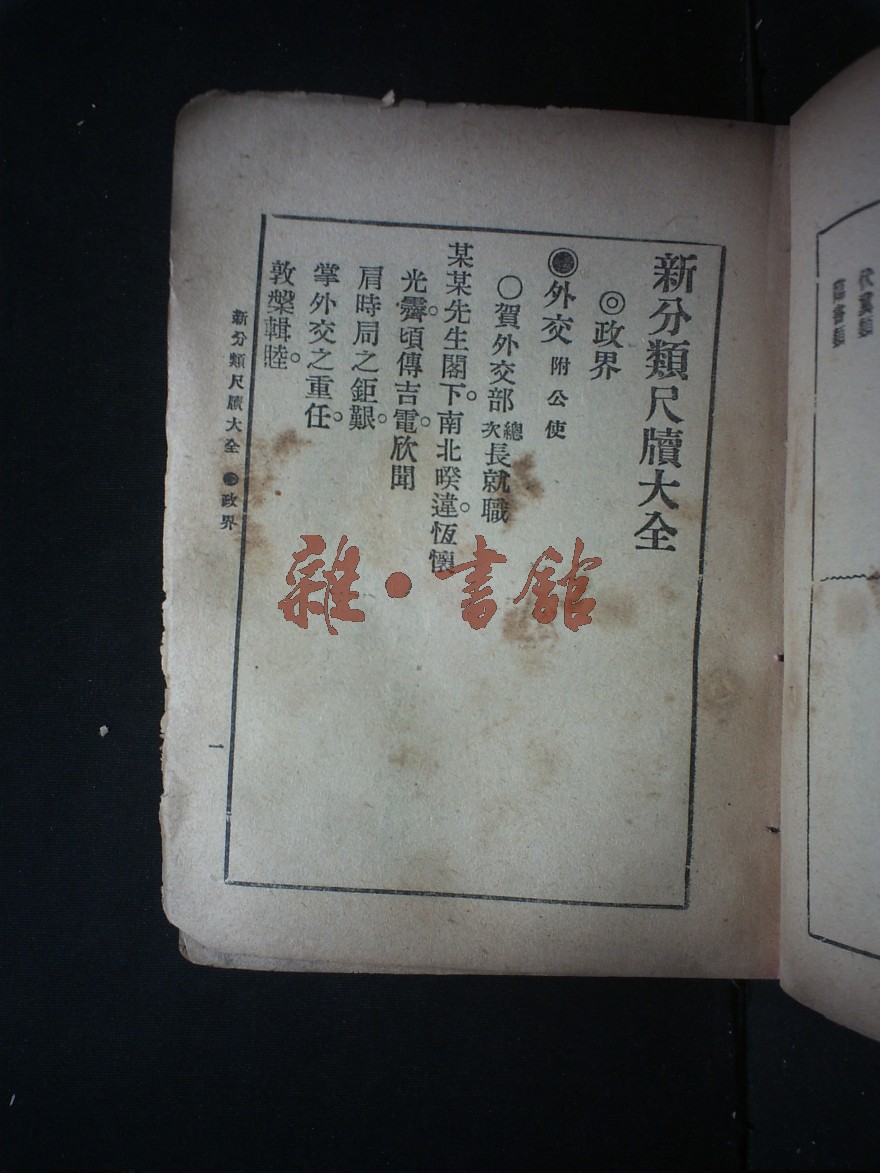 新分類尺牘大全
◎政界
外交 附公使
○賀外交部總次長就職
某某先生閣下。南北暌違。恆懷
光霽。頃傳吉電。欣聞
肩時局之鉅艱。
掌外交之重任。
敦槃輯睦。
新分類尺牘大全 政界
一
雜·書館